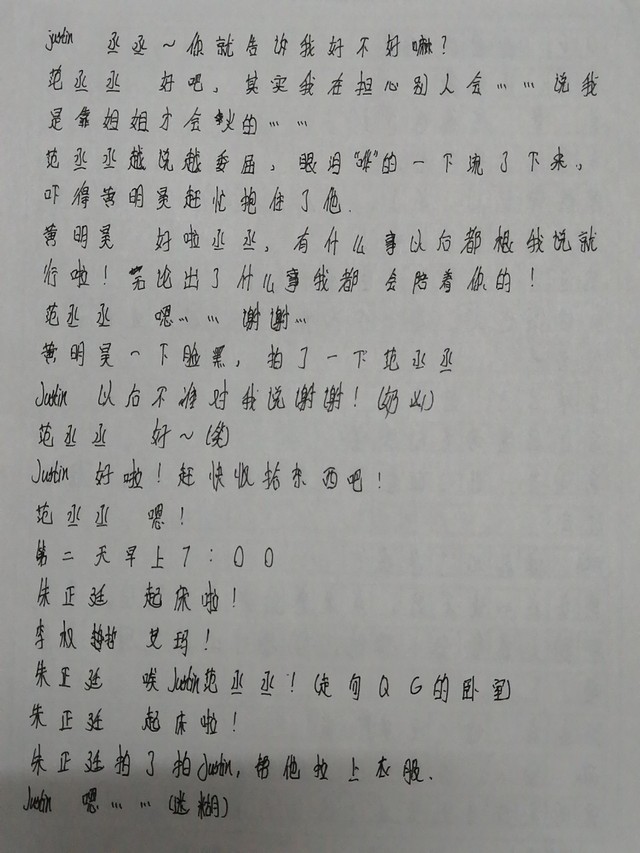 justin 丞丞~你就告诉我好不好嘛?
范丞丞 好吧,其实我在担心别人会……说我
是靠姐姐才会火的……
范丞丞越说越委屈,眼泪"哗"的一下流了下来,
吓得黄明昊赶忙抱住了他.
黄明昊 好啦丞丞,有什么事以后都跟我说就
行啦!无论出了什么事我都会陪着你的!
范丞丞 嗯……谢谢…
黄明昊一下脸黑,拍了一下范丞丞
Justin 以后不准对我说谢谢!(奶凶)
范丞丞 好~(笑)
Justin 好啦!赶快收拾东西吧!
范丞丞 嗯!
第二天早上7:00
朱正廷 起床啦!
李权哲 艾玛!
朱正廷 唉Justin范丞丞!(走向QG的卧室)
朱正廷 起床啦!
朱正廷拍了拍Justin,帮他拉上衣服.
Justin 嗯……(迷糊)